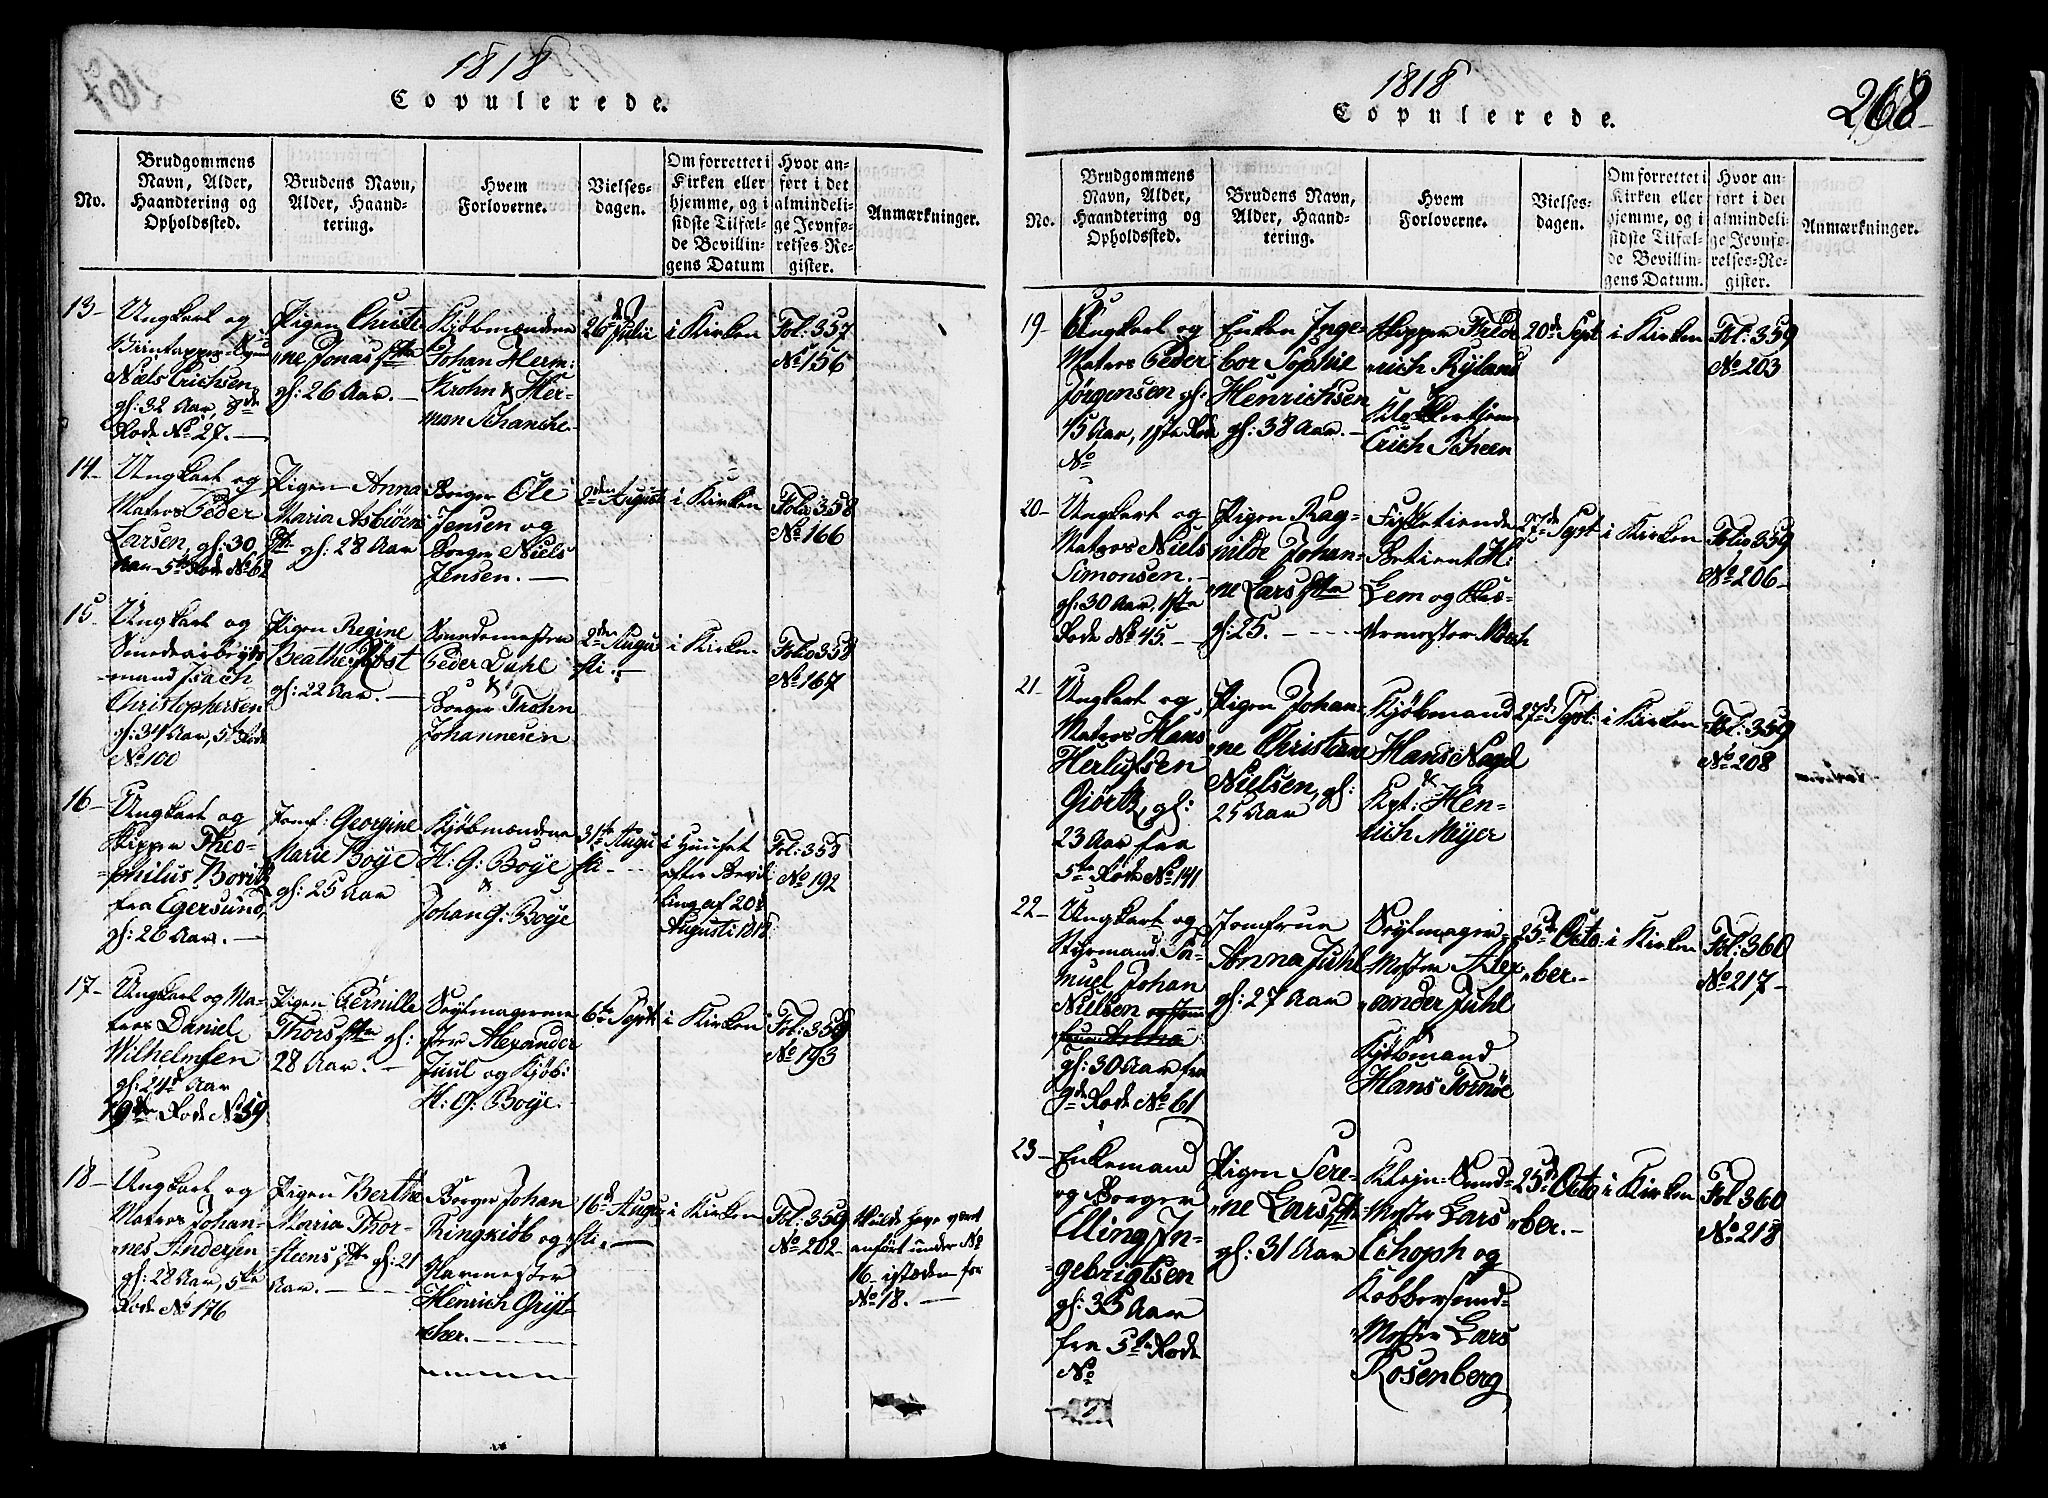 1818
Copulerede.
No.
Brudgommens
Navn, Alder,
Haandtering og
Opholdssted.
Brudens Navn,
Alder, Haand-
tering.
Hvem
Forloverne.
Vielses-
dagen.
Om forrettet i
Kirken eller
hjemme, og i
sidste Tilfæl-
de Bevillin-
gens Datum
Hvor an-
ført i det
almindeli-
ge Jevnfø-
relses-Re-
gister.
Anmærkninger.
13-
Ungkarl og
Niels Erichsen,
gl: 32 Aar, 8de
Rode No 27. —
Pigen Christi
"ne Jonas
gl: 26 Aar. —
Kjøbmændene
Johan Herm:
Krohn & Her-
man Schanche.
26de Julii
i Kirken
Fol: 357
No 156
14-
Ungkarl og
Matros Peder
Larsen, gl: 30
Aar 5te Rode No 62
Pigen Anna
Maria Asbiørn
gl: 28 Aar
Borger Ole
Jensen og
Borger Niels
Jensen. —
2den Augusti
i Kirken
Folio 358
No 166
15
Ungkarl og
Smedearbeyds
-mand Isach
Christophersen
gl: 34 Aar, 5te Rode
No 100
Pigen Regine
Beathe Røst
gl: 22 Aar. —
Smedemester
Peder Dahl
&
Borger Trohn
Johannesen
2den Augu
sti.
i Kirken
Folio 358
No 167
16-
Ungkarl og
Skipper Theo-
-philus Boritz
fra Egersund,
gl: 26 Aar. —
Jomf: Georgine
Marie Boye
gl: 25 Aar
Kjøbmændene
H: G: Boye
&
Johan G: Boye
31te Augu
sti - - -
i Huuset
efter Bevil
ling af 20de
Augusti 1818
Fol: 358
No 192
17-
Ungkarl og Ma-
tros Daniel
Wilhelmsen
gl: 24de Aar
9de Rode No 59
Pigen Pernille
Thors gl:
28 Aar. —
Alexander
Juul og Kjøb:
H: G: Boye.
6te Sept
i Kirken
Fol: 359
No 193
18-
Ungkarl og
Matros Johan-
nes Andersen
gl: 28 Aar, 5te
Rode No 176
Pigen Berthe
Maria Thor-
steens gl: 21
Aar. —
Borger Johan
Ringkiøb og
Havnemester
Henrich Gryt-
"cher. —
16de Augu
sti. —
i Kirken
Fol: 359
No 202-
Skulde have været
anført under No
16- istæden for
No 18. —
1818
268
Copulerede.
No.
Brudgommens
Navn, Alder,
Haandtering og
Opholdssted.
Brudens Navn,
Alder, Haand-
tering.
Hvem
Forloverne.
Vielses-
dagen.
Om forrettet i
Kirken eller
hjemme, og i
sidste Tilfæl-
de Bevillin-
gens Datum.
Hvor an-
ført i det
almindeli-
ge Jevnfø-
relses-Re-
gister.
Anmærkninger.
19-
Ungkarl og
Matros Peder
Jørgensen gl:
45 Aar, 1ste Rode
No
Enken Inge-
bor Sophie
Henrichsen
gl: 38 Aar. —
Skipper Fride
"rich Ryland
&
Erich Scheen
20de Sept
i Kirken
Fol: 359
No 203
20-
Ungkarl og
Matros Niels
Simonsen. —
gl: 30 Aar, 1ste
Rode No 45. —
Pigen Rag-
nilde Johan-
ne Lars
gl: 25. - - -
Fisketiende
Betient H:
Lem og Hav-
"nemester Mosch
27de Sept
i Kirken
Folio 359
No 206-
21-
Ungkarl og
Matros Hans
Herlufsen
Giørtz, gl:
23 Aar fra
5te Rode No 141
Pigen Johan-
"ne Christine
Nielsen, gl:
25 Aar
Kjøbmand
Hans Nagel
&
Kpt: Hen-
rich Meyer
27de Sept:
i Kirken
Fol: 359
No 208
22-
Ungkarl og
Styrmand Sa-
muel Johan
Nielsen
gl: 30 Aar fra
9de Rode No 61
Jomfrue
Anna Juhl
gl: 27 Aar
Mester Alex
"ander Juhl
&
Kjøbmand
Hans Tornøe
25de Octo
"ber. -
i Kirken
Fol: 360
No 217-
23-
Enkemand
og Borger
Elling In-
"gebrigtsen
gl: 35 Aar
fra 5te Rode
No
Pigen Sere-
"ne Lars
gl: 31 Aar
Klejn-Smed-
Mester Lars
Echoph og
Kobbersmed-
"Mester Lars
Rosenberg
25de Octo
"ber. -
i Kirken
Fol 360
No 218